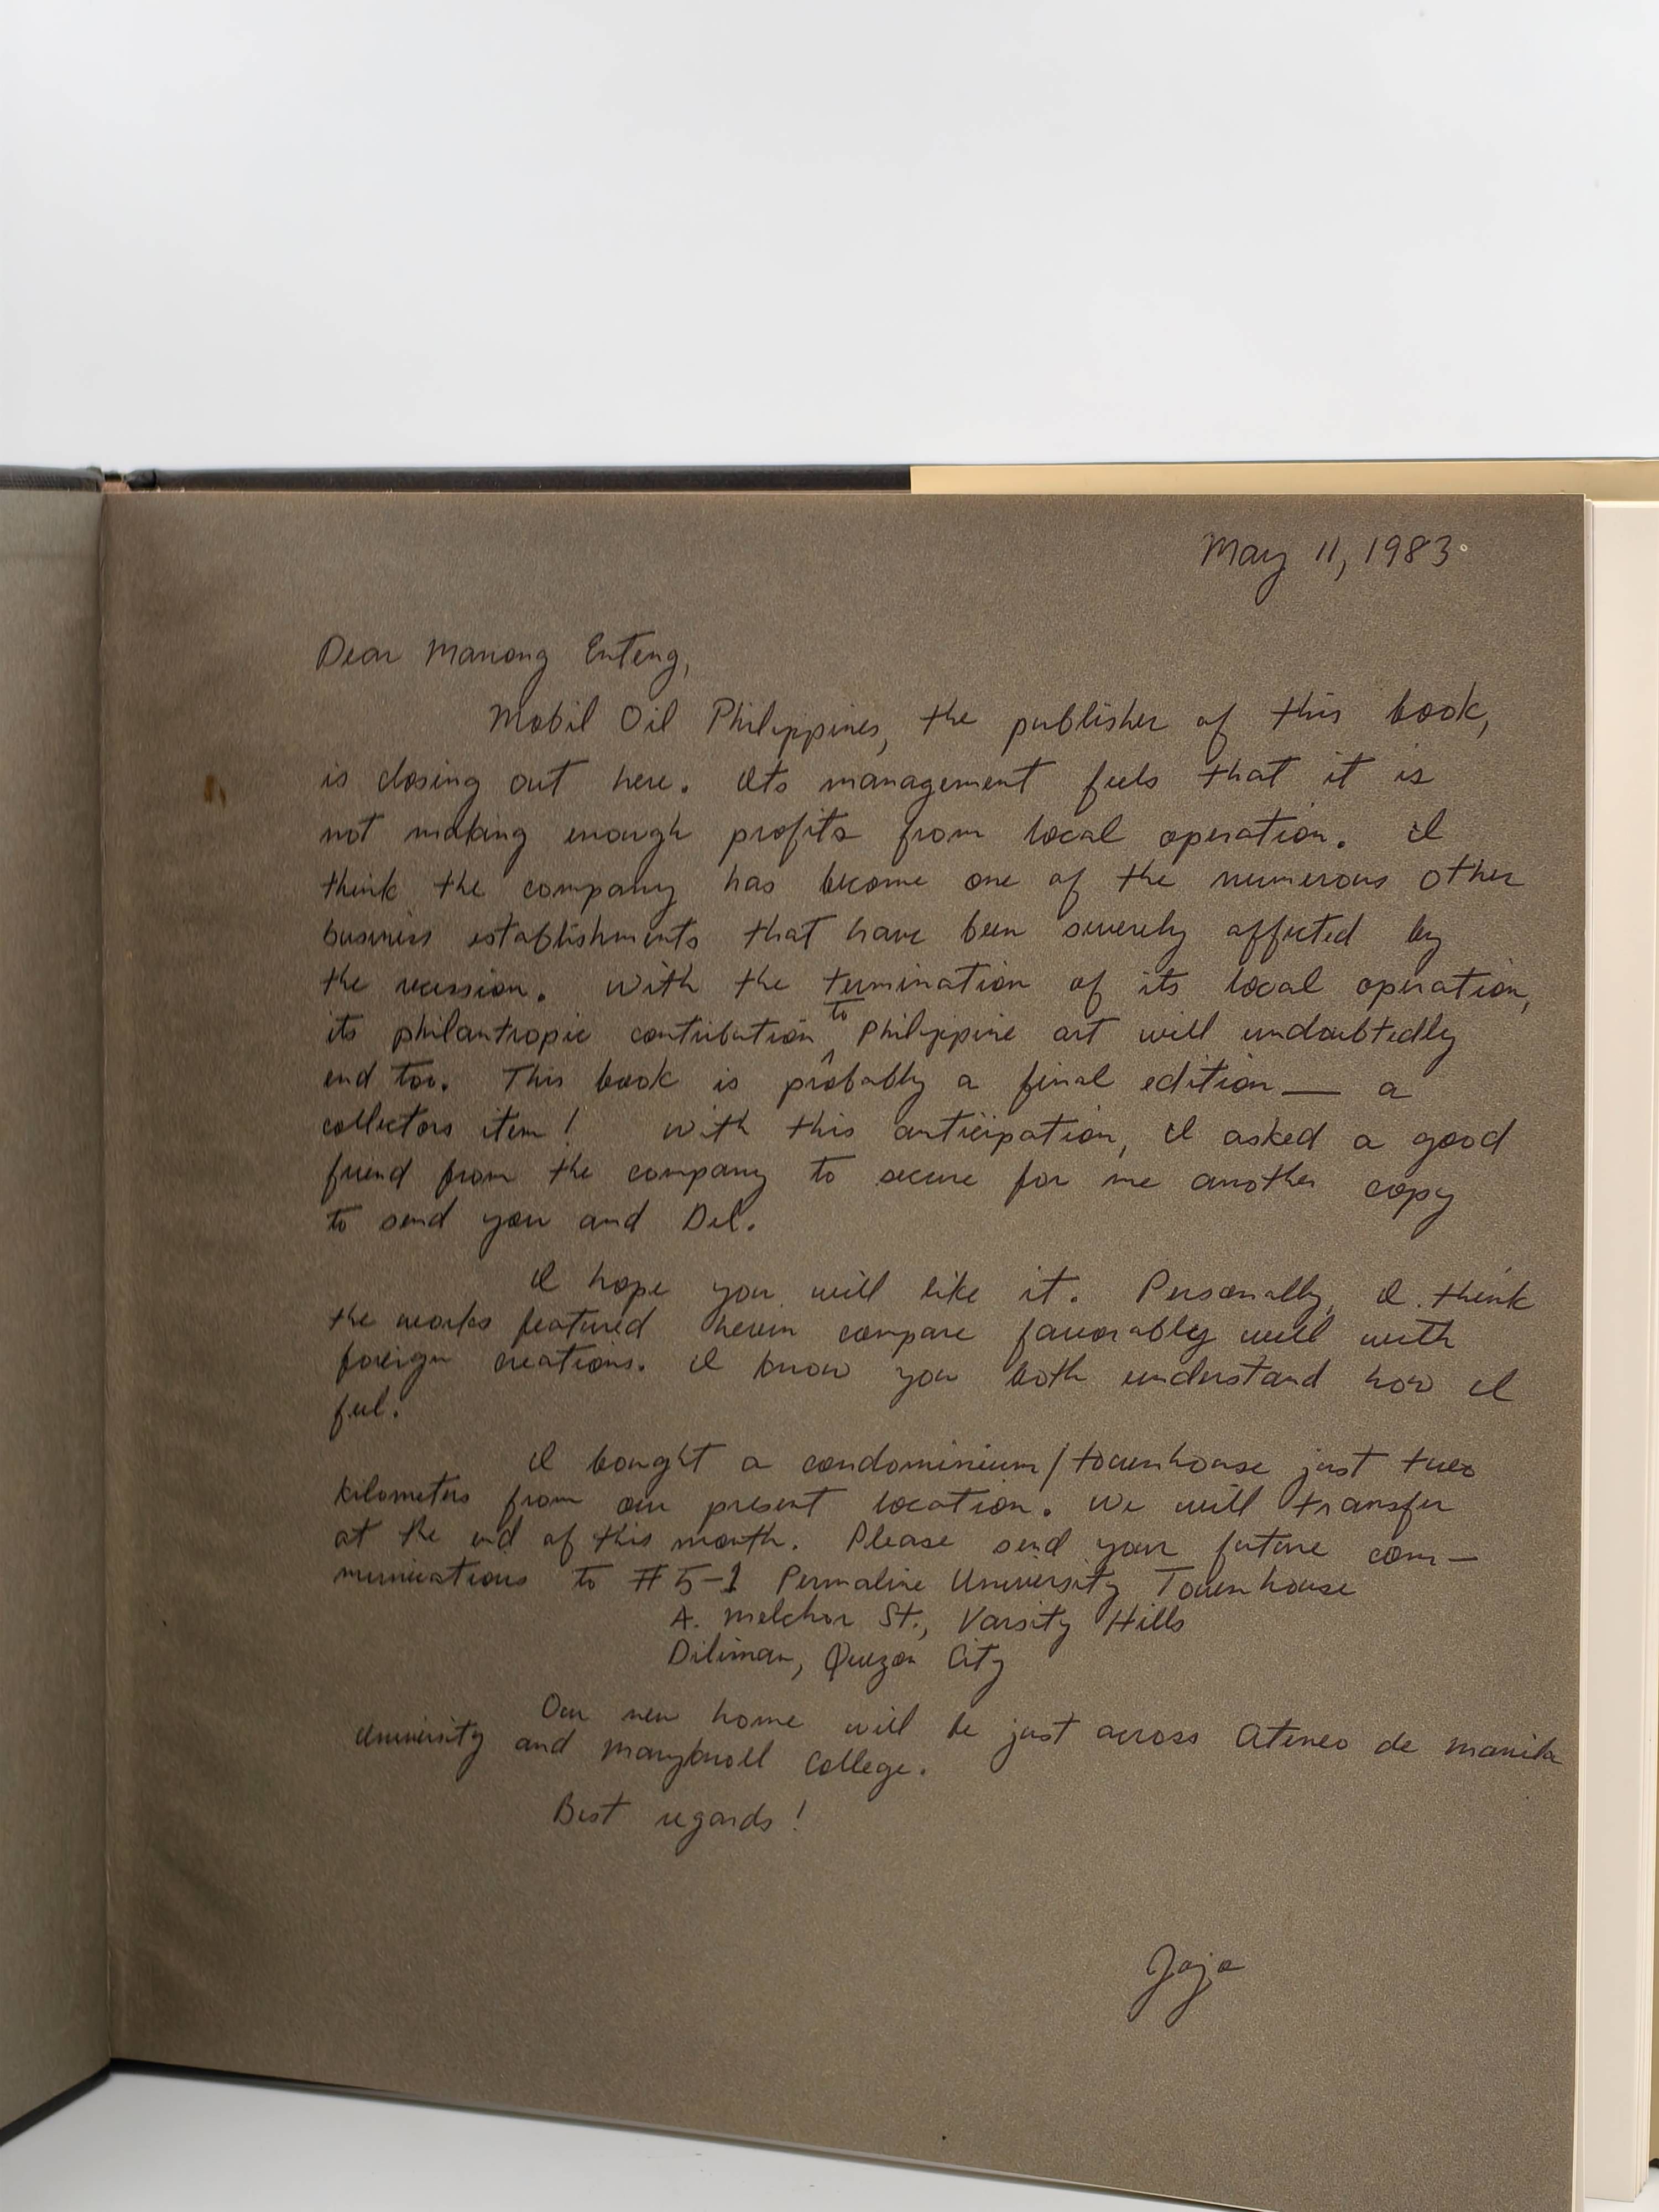 May 11, 1983
Dear Manong Enteng,
Mobil Oil Philippines, the publisher of this book,
is closing out here. Its management feels that it is
not making enough profits from local operation. I
think the company has become one of the numerous other
business establishments that have been severely affected by
the recession. With the termination of its local operation,
its philantropic contribution to Philippine art will undoubtedly
end too. This book is probably a final edition — a
collectors item! With this anticipation, I asked a good
friend from the company to secure for me another copy
to send you and Del.
I hope you will like it. Personally, I think
the works featured herein compare favorably well with
foreign creations. I know you both understand how I
feel.
I bought a condominium/townhouse just two
kilometers from our present location. We will transfer
at the end of this month. Please send your future com-
munications to #5-1 Permaline University Townhouse
A. Melchor St., Varsity Hills
Diliman, Quezon City
Our new home will be just across Ateneo de Manila
University and Maryknoll College.
Best regards!
Jojo